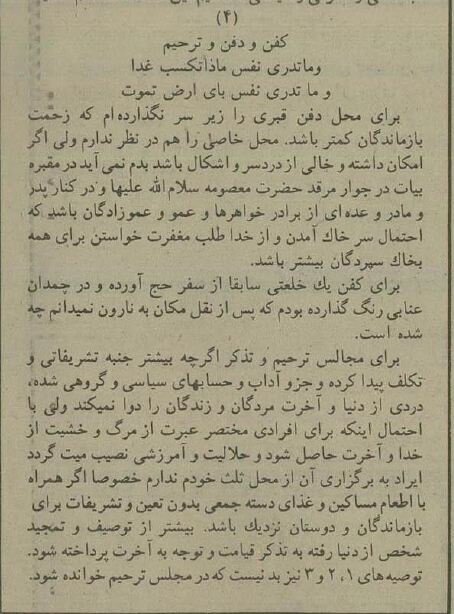 (۴)
کفن و دفن و ترحیم
وماتدری نفس ماذاتکسب غدا
و ما تدری نفس بای ارض تموت
برای محل دفن قبری را زیر سر نگذارده‌ام که زحمت
بازماندگان کمتر باشد. محل خاصی را هم در نظر ندارم ولی اگر
امکان داشته و خالی از دردسر و اشکال باشد بدم نمی‌آید در مقبره
بیات در جوار مرقد حضرت معصومه سلام‌الله علیها و در کنار پدر
و مادر و عده‌ای از برادر خواهرها و عمو و عموزادگان باشد که
احتمال سر خاك آمدن و از خدا طلب مغفرت خواستن برای همه
بخاك سپردگان بیشتر باشد.
برای کفن یك خلعتی سابقا از سفر حج آورده و در چمدان
عنابی رنگ گذارده بودم که پس از نقل مکان به نارون نمیدانم چه
شده است.
برای مجالس ترحیم و تذکر اگرچه بیشتر جنبه تشریفاتی و
تکلف پیدا کرده و جزو آداب و حسابهای سیاسی و گروهی شده،
دردی از دنیا و آخرت مردگان و زندگان را دوا نمیکند ولی با
احتمال اینکه برای افرادی مختصر عبرت از مرگ و خشیت از
خدا و آخرت حاصل شود و حلالیت و آمرزشی نصیب میت گردد
ایراد به برگزاری آن از محل ثلث خودم ندارم خصوصا اگر همراه
با اطعام مساکین و غذای دسته جمعی بدون تعین و تشریفات برای
بازماندگان و دوستان نزدیك باشد. بیشتر از توصیف و تمجید
شخص از دنیا رفته به تذکر قیامت و توجه به آخرت پرداخته شود.
توصیه‌های ۱، ۲ و ۳ نیز بد نیست که در مجلس ترحیم خوانده شود.